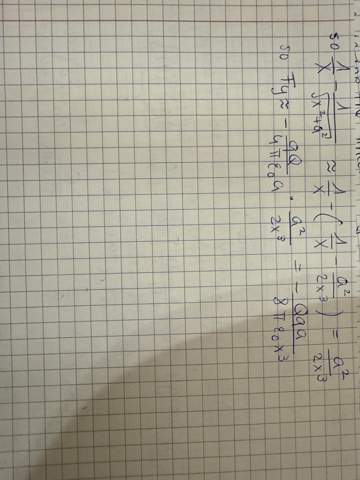 so 1/x - 1/√(x²+a²) ≈ 1/x - (1/x - a²/2x³) = a²/2x³
so Fy ≈ - qQ/4πε₀a · a²/2x³ = - Qqa/8πε₀x³